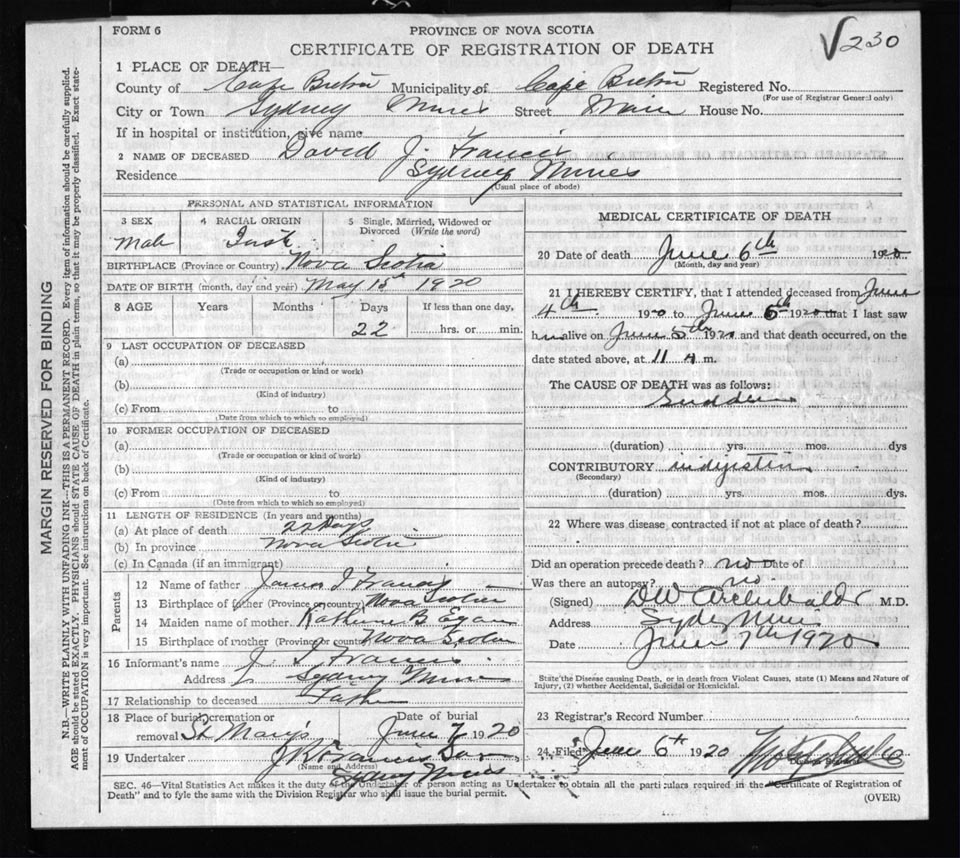 FORM 6
PROVINCE OF NOVA SCOTIA
CERTIFICATE OF REGISTRATION OF DEATH
√230
1 PLACE OF DEATH—
County of Cape Breton Municipality of Cape Breton Registered No.
(For use of Registrar General only)
City or Town Sydney Mines Street Main House No.
If in hospital or institution, give name
2 NAME OF DECEASED David J. Francis
Residence Sydney Mines
(Usual place of abode)
PERSONAL AND STATISTICAL INFORMATION
3 SEX 4 RACIAL ORIGIN 5 Single, Married, Widowed or Divorced (Write the word)
Male
BIRTHPLACE (Province or Country) Nova Scotia
DATE OF BIRTH (month, day and year) May 15th 1920
8 AGE Years Months Days If less than one day,
22 hrs. or min.
9 LAST OCCUPATION OF DECEASED
(a)
(Trade or occupation or kind or work)
(b)
(Kind of industry)
(c) From to
(Date from which to which so employed)
10 FORMER OCCUPATION OF DECEASED
(a)
(Trade or occupation or kind of work)
(b)
(Kind of industry)
(c) From to
(Date from which to which so employed)
11 LENGTH OF RESIDENCE (In years and months)
(a) At place of death 22 Days
(b) In province Nova Scotia
(c) In Canada (if an immigrant)
Parents
12 Name of father James J Francis
13 Birthplace of father (Province or country) Nova Scotia
14 Maiden name of mother Katherine B Egan
15 Birthplace of mother (Province or country) Nova Scotia
16 Informant's name J. J Francis
Address Sydney Mines
17 Relationship to deceased Father
18 Place of burial, cremation or removal St Mary's Date of burial June 7 1920
19 Undertaker Francis
(Name and Address)
Sydney Mines
MEDICAL CERTIFICATE OF DEATH
20 Date of death June 6th 1920
(Month, day and year)
21 I HEREBY CERTIFY, that I attended deceased from June
4th 1920 to June 6th 1920 that I last saw
him alive on June 5th 1920 and that death occurred, on the
date stated above, at 11 A m.
The CAUSE OF DEATH was as follows:
Sudden
(duration) yrs. mos. dys
CONTRIBUTORY indigestion
(Secondary)
(duration) yrs. mos. dys.
22 Where was disease contracted if not at place of death?
Did an operation precede death? no Date of
Was there an autopsy? no
(Signed) DW Archibald M.D.
Address Sydney Mines
Date June 7th 1920
State the Disease causing Death, or in death from Violent Causes, state (1) Means and Nature of
Injury, (2) whether Accidental, Suicidal or Homicidal.
23 Registrar's Record Number
24 Filed June 6th 1920
SEC. 46—Vital Statistics Act makes it the duty of the Undertaker or person acting as Undertaker to obtain all the particulars required in the "Certificate of Registration of
Death" and to fyle the same with the Division Registrar who shall issue the burial permit.
(OVER)
MARGIN RESERVED FOR BINDING
N.B.—WRITE PLAINLY WITH UNFADING INK—THIS IS A PERMANENT RECORD. Every item of information should be carefully supplied.
AGE should be stated EXACTLY. PHYSICIANS should STATE CAUSE OF DEATH in plain terms, so that it may be properly classified. Exact state-
ment of OCCUPATION is very important. See instructions on back of Certificate.